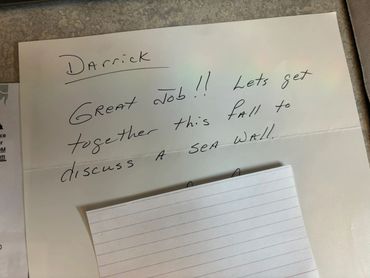 Darrick
Great Job!! Lets get
together this fall to
discuss a sea wall.